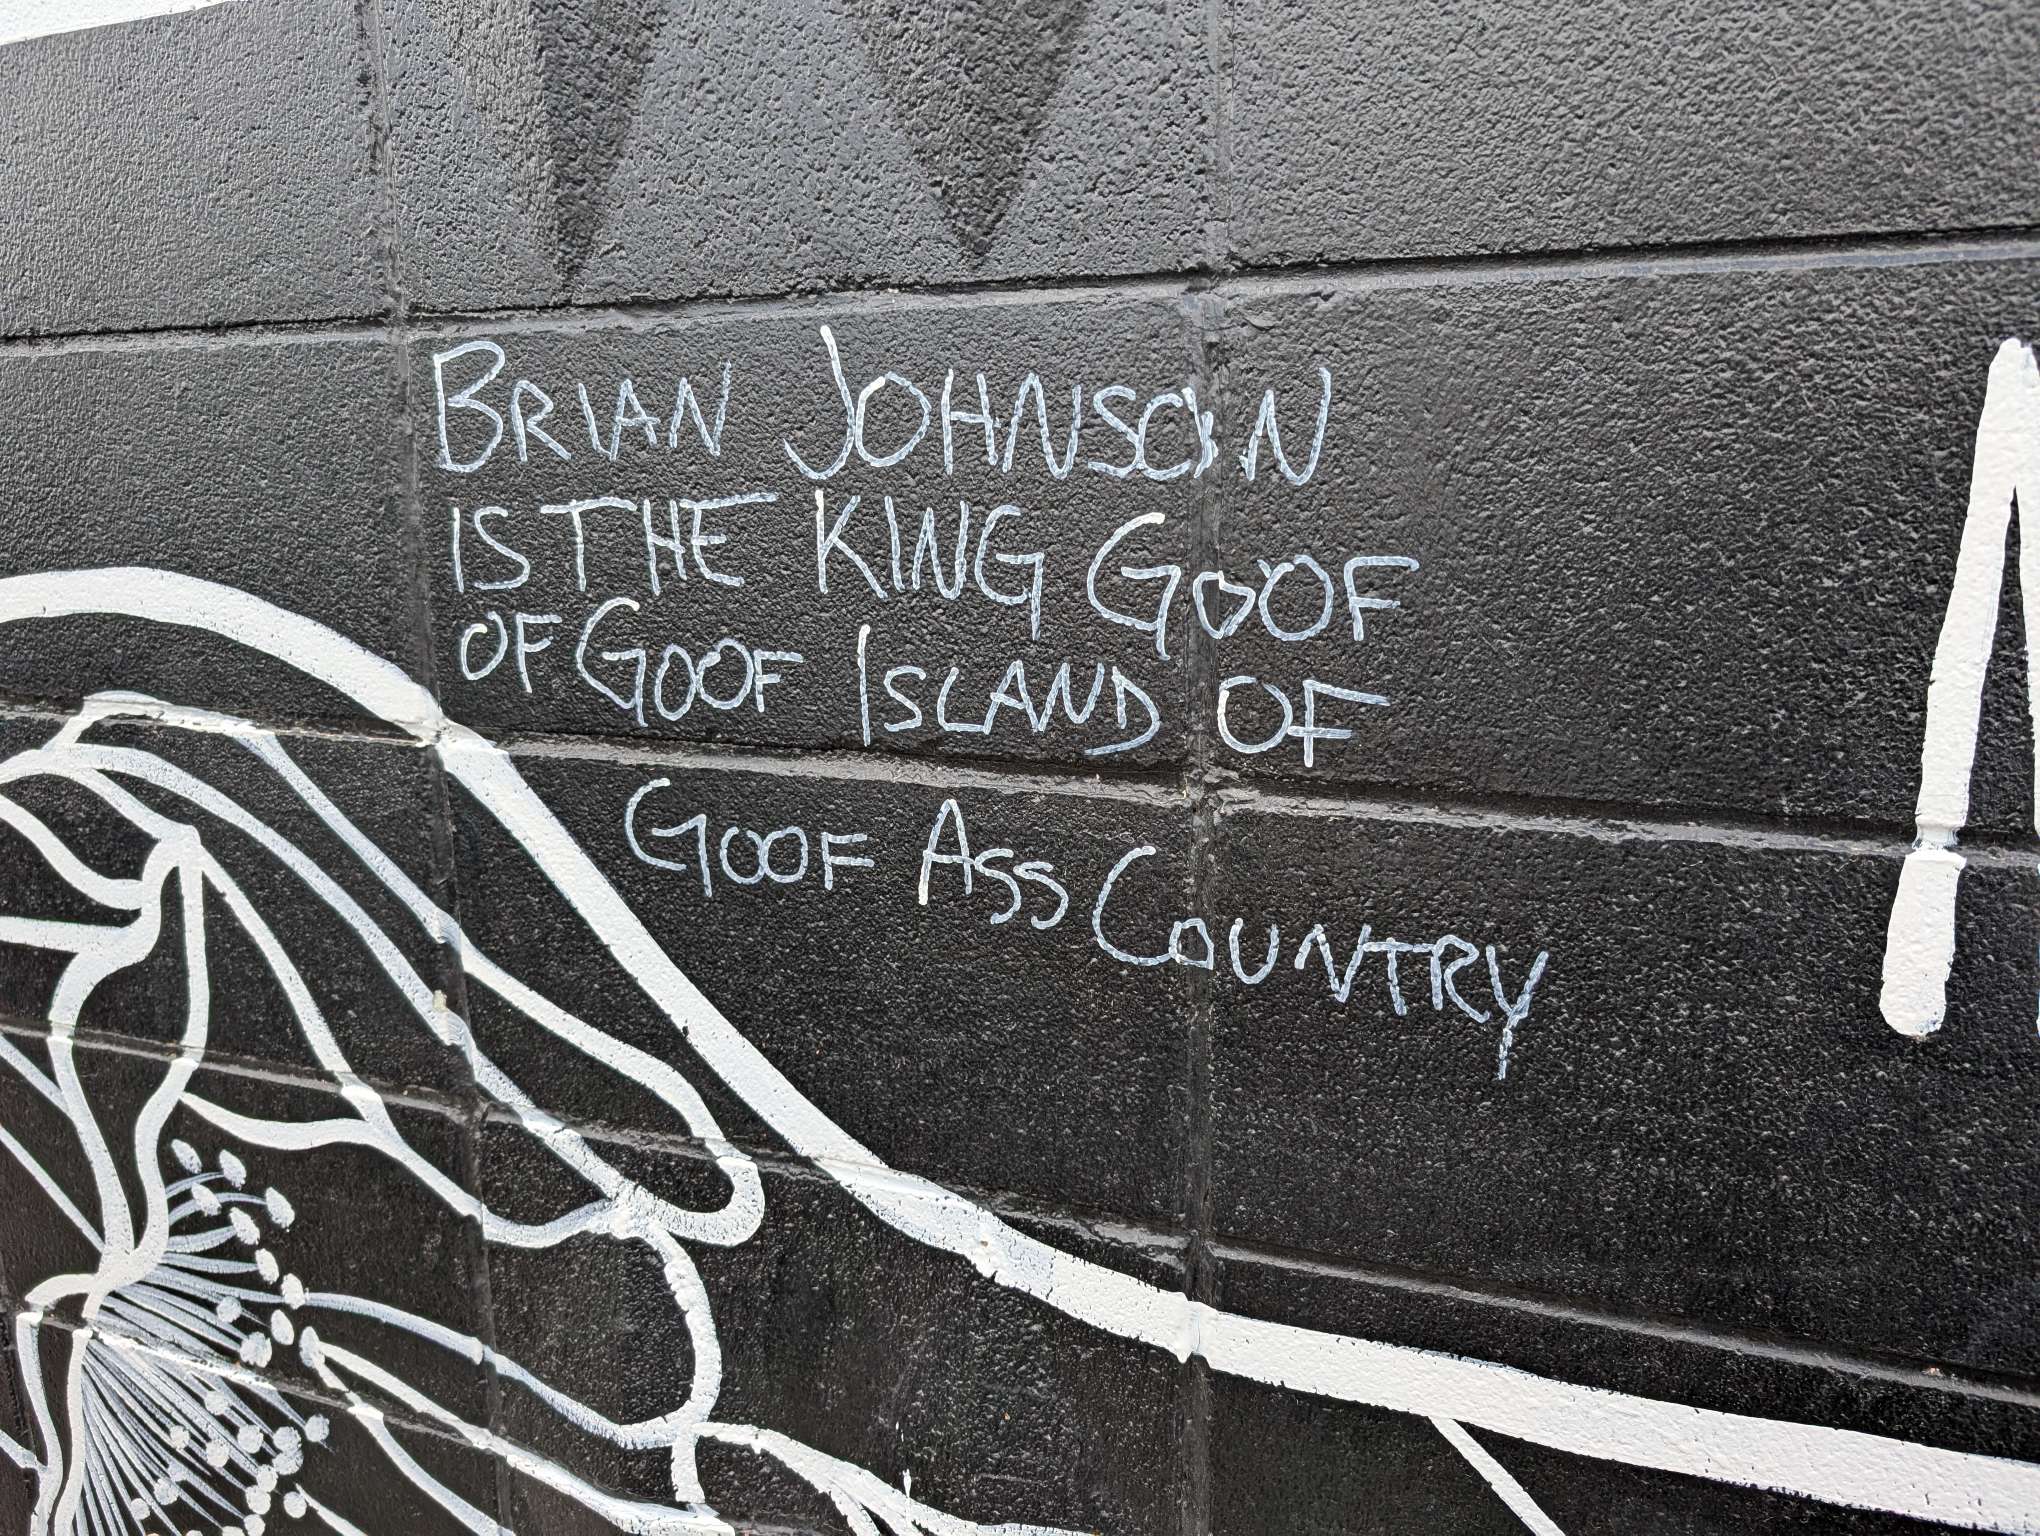 BRIAN JOHNSON
IS THE KING GOOF
OF GOOF ISLAND OF
GOOF ASS COUNTRY